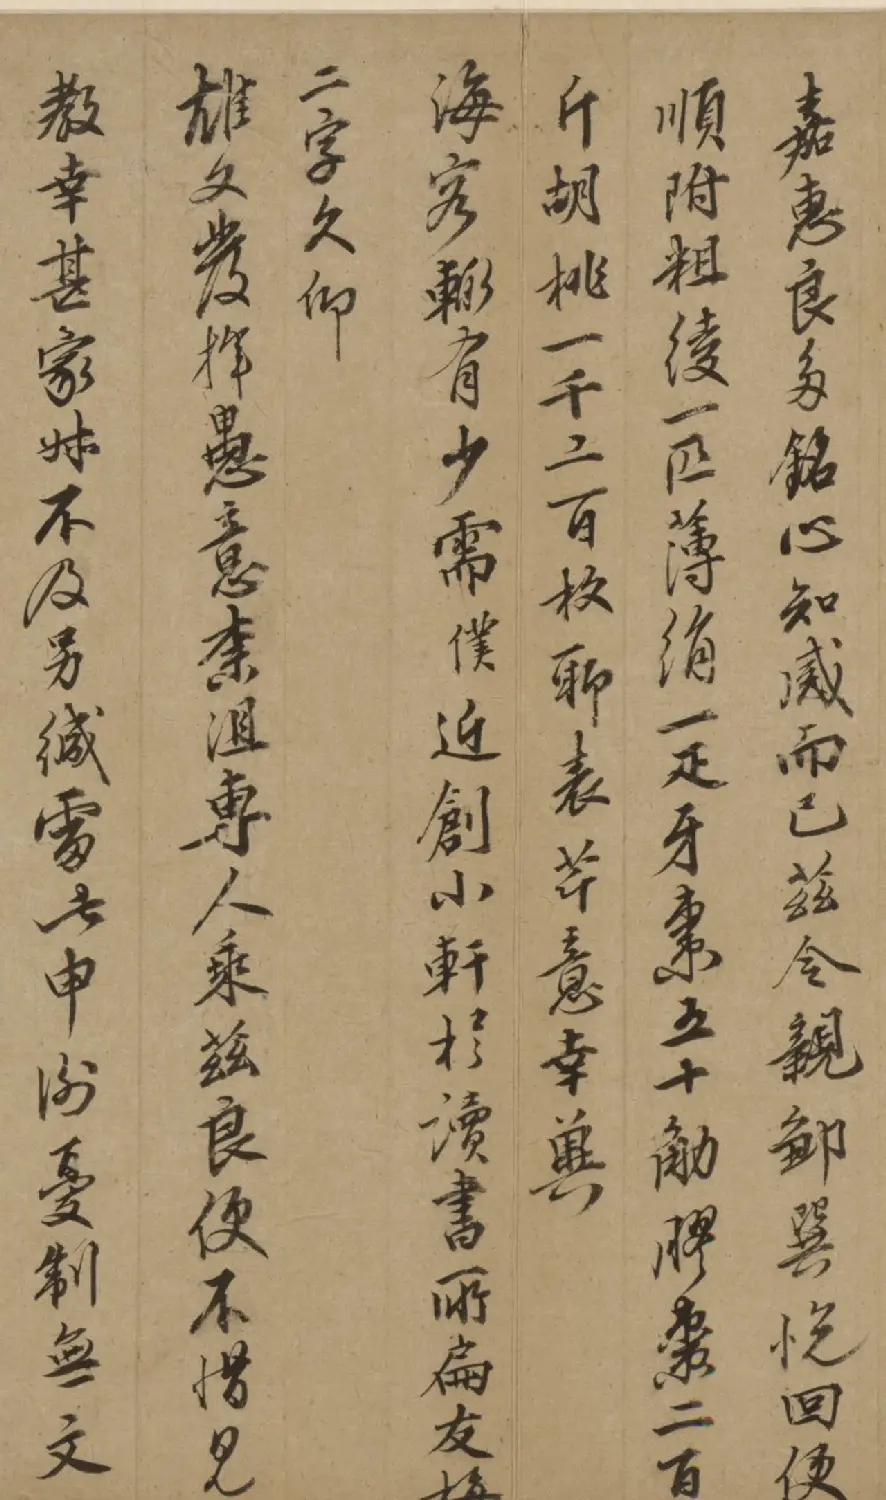 嘉惠良多銘心知感而已茲令親卸巽悅回便
順附粗綾一匹薄絹一疋牙棗五十觔膠棗二百
斤胡桃一千二百枚聊表芹意幸異
海容輙有少需僕近創小軒於讀書所扁友梅
二字久仰
雄文發揮愚意柰沮專人乘茲良便不惜見
教幸甚家妹不及另緘雷此申謝憂制無文